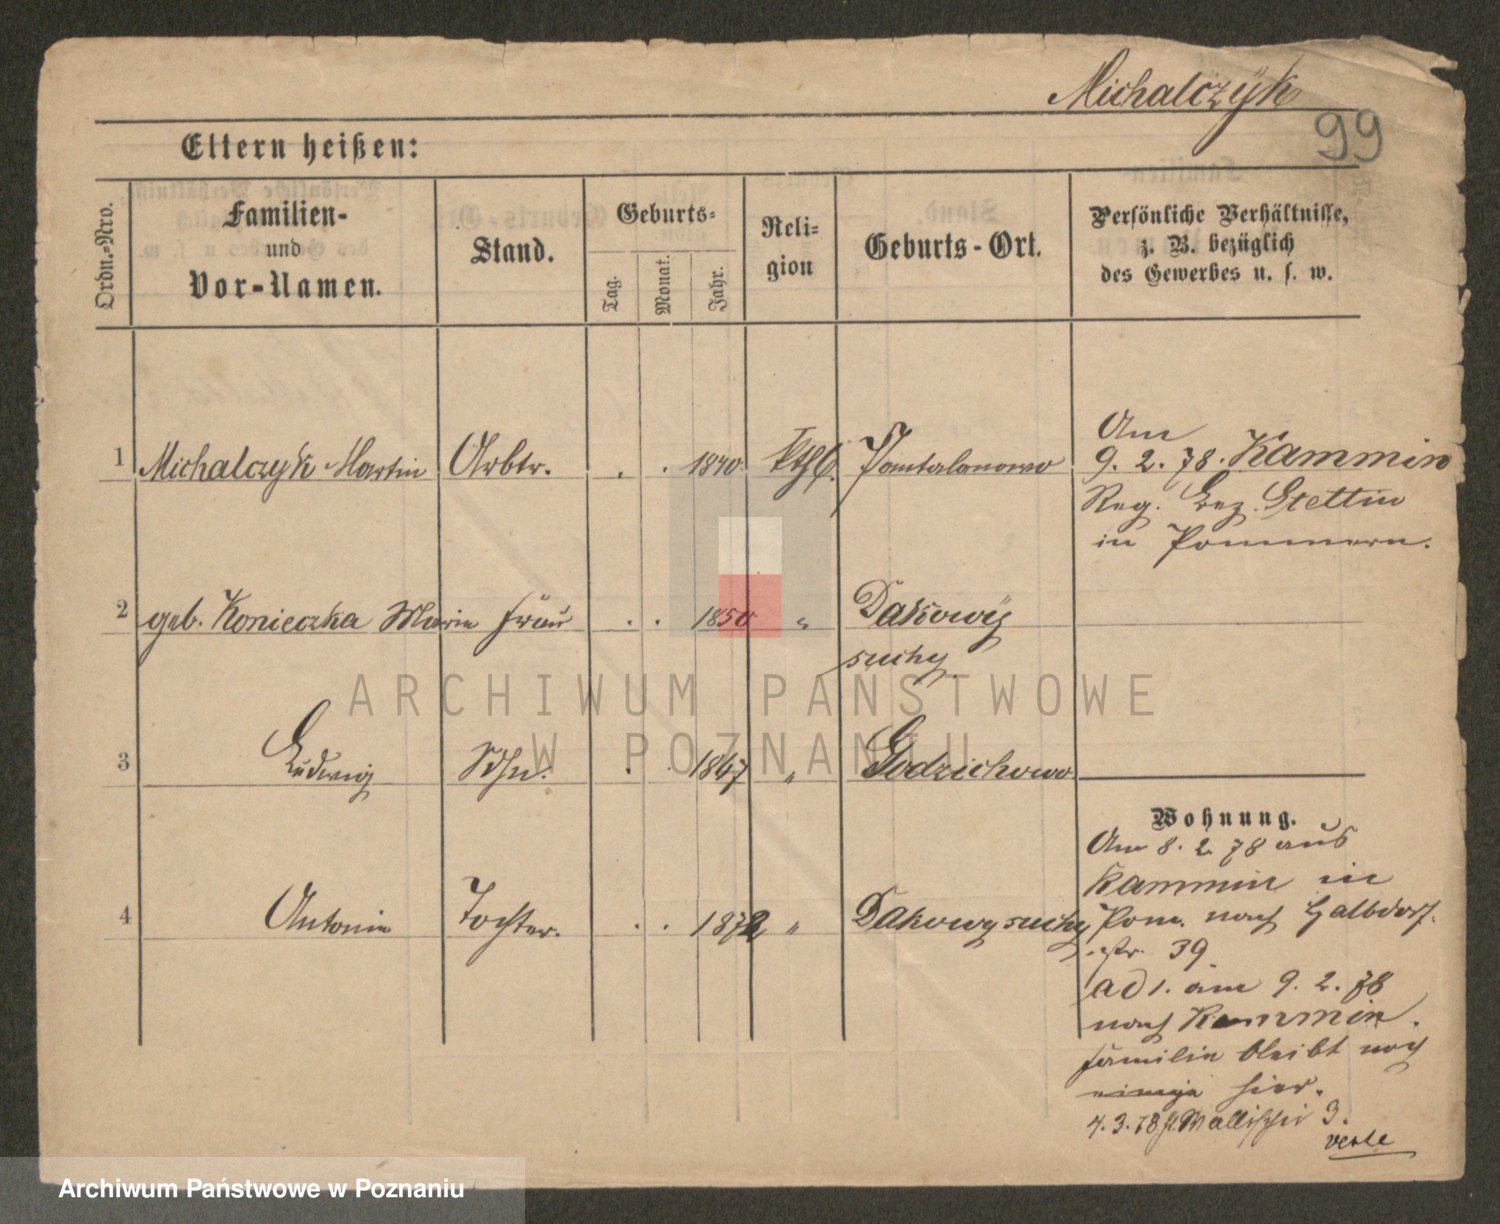 Michalczyk
99
Eltern heißen:
Ordn.-Nro.
Familien-
und
Vor-Namen.
Stand.
Geburts-
Tag.
Monat.
Jahr.
Reli-
gion
Geburts-Ort.
Persönliche Verhältnisse,
z. B. bezüglich
des Gewerbes u. s. w.
1 Michalczyk Martin Arbtr. . . 1840 kthl. Pantalonowo
Am
9. 2. 78. Kammin
Reg. Bez. Stettin
in Pommern.
2 geb. Konieczka Marie Frau . . 1850 " Dakowÿ
suchy
3 Ludwig Sohn. . . 1867 " Godzichowo
4 Antonie Tochter. . . 1872 " Dakowy suchy
Wohnung.
Am 8. 2 78 aus
Kammin in
Pom. nach Halbdorf-
str. 39
ad 1. am 9. 2. 78
nach Kammin.
Familie bleibt noch
hier.
4. 3. 78 Wallischei 3.
verte
ARCHIWUM PAŃSTWOWE
W POZNANIU
Archiwum Państwowe w Poznaniu